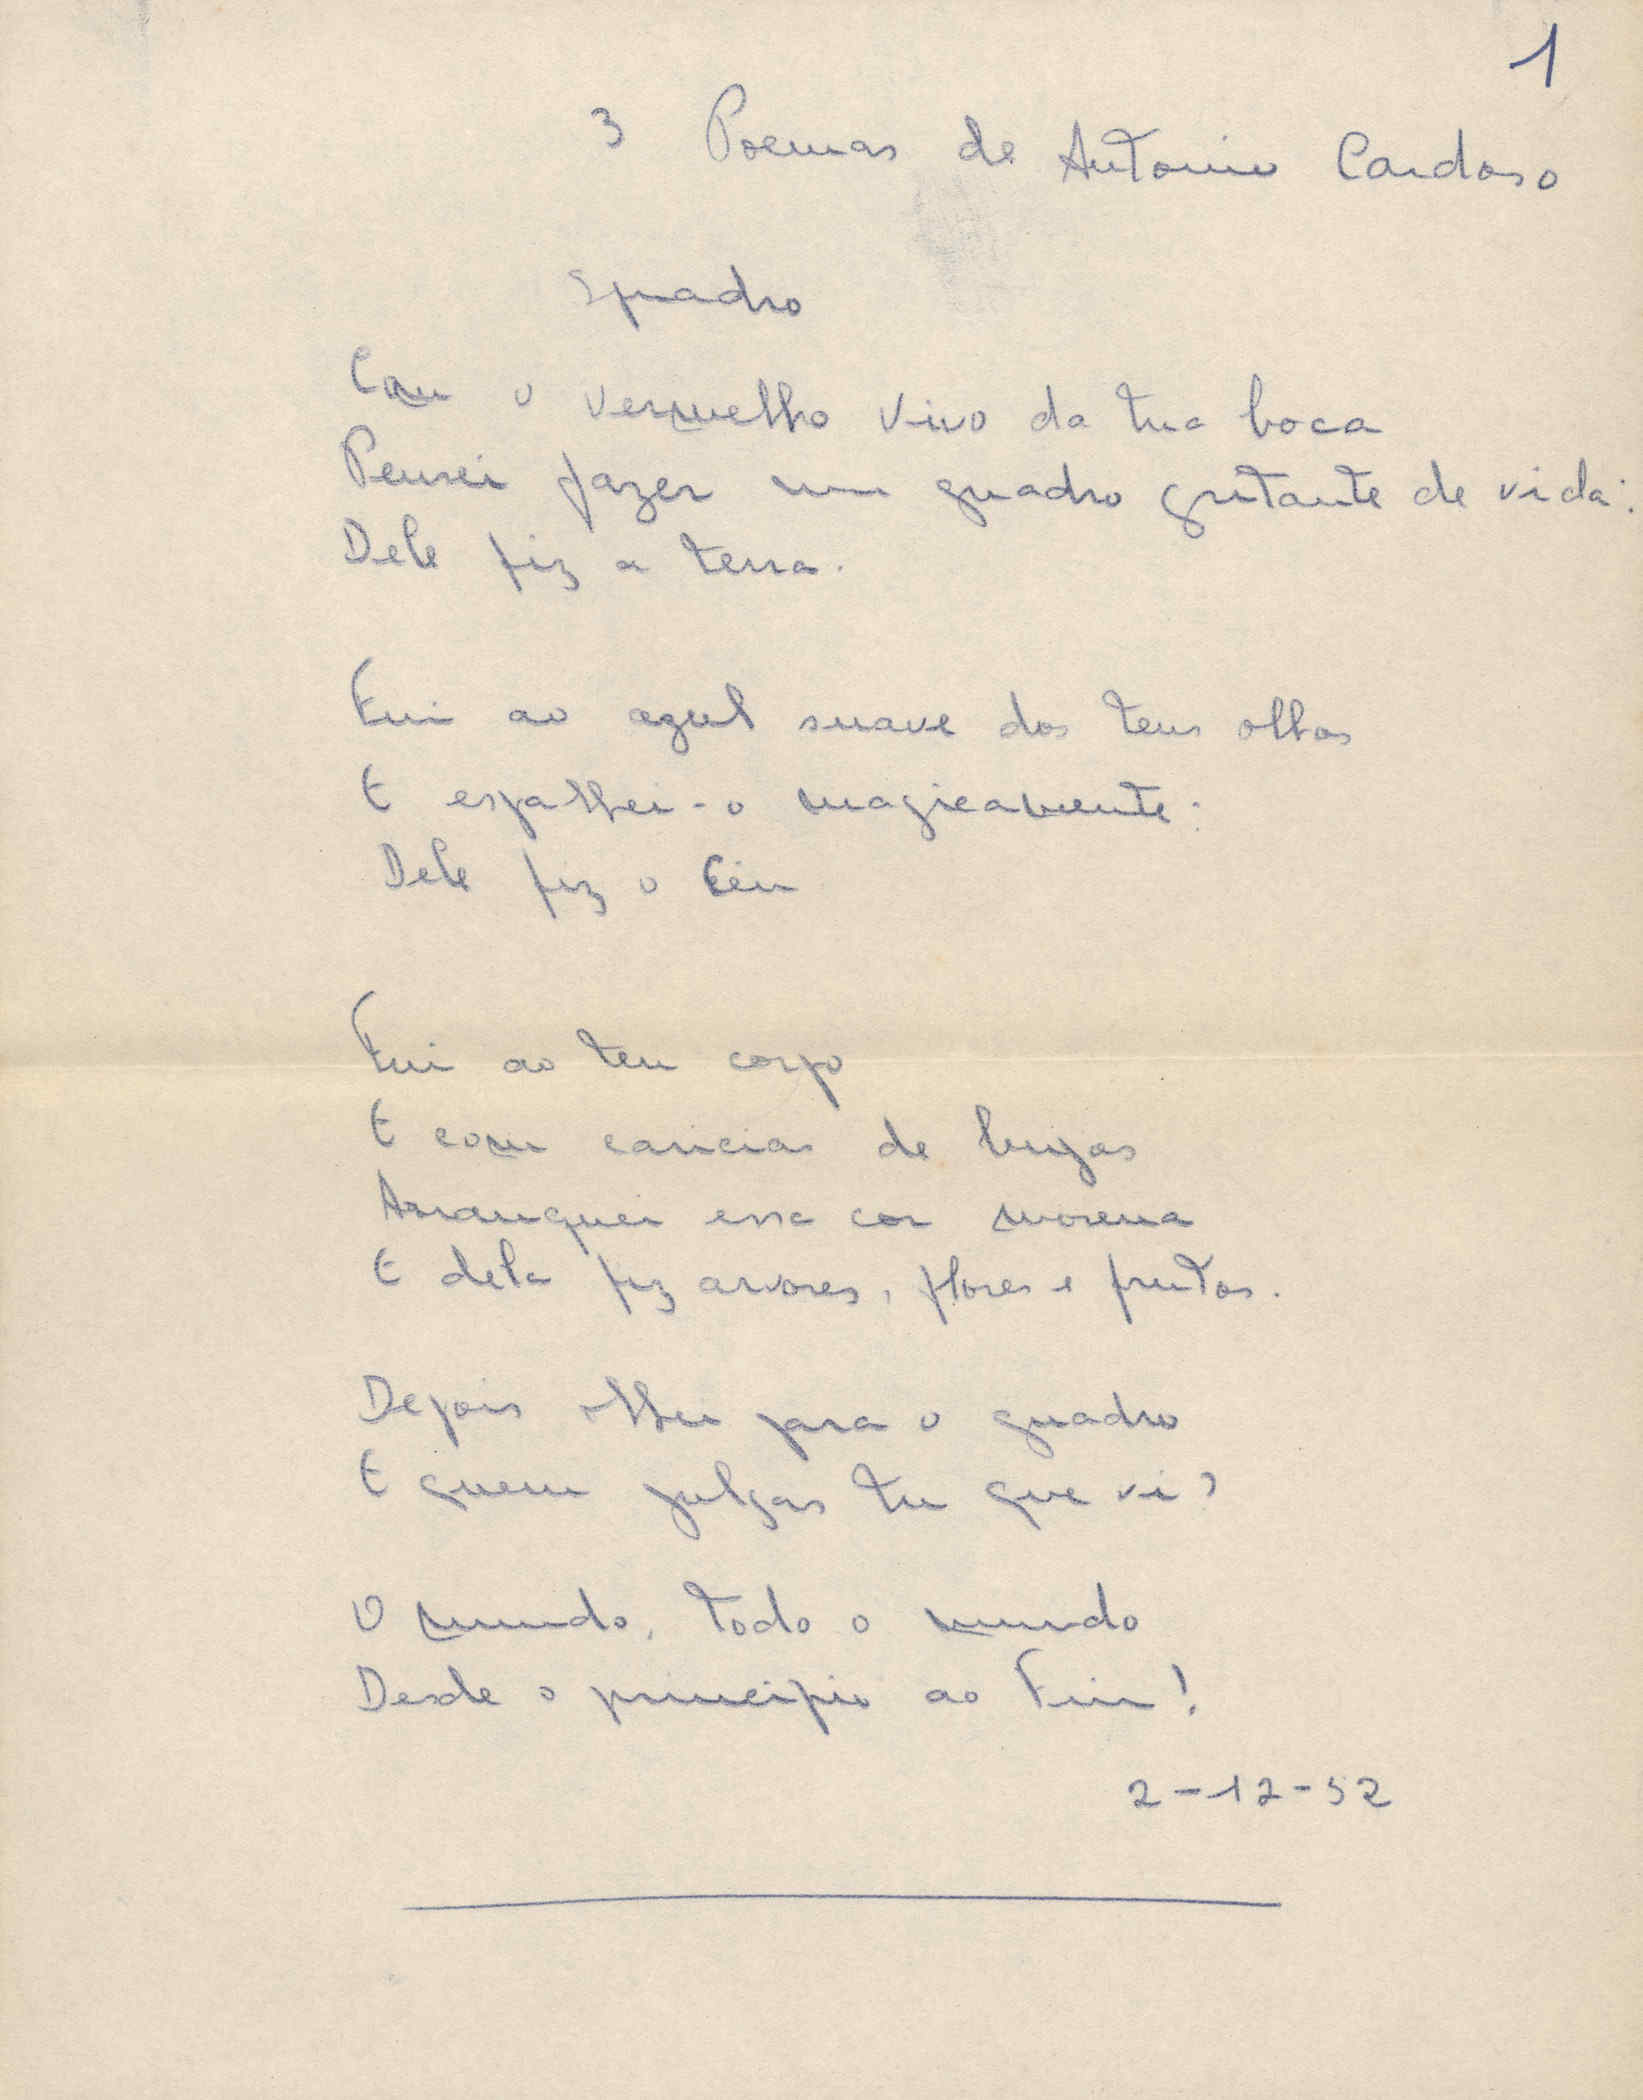 1
3 Poemas de Antonio Cardoso
Quadro
Com o vermelho vivo da tua boca
Pensei fazer um quadro gritante de vida:
Dele fiz a terra.
Fui ao azul suave dos teus olhos
E espalhei-o magicamente:
Dele fiz o Céu
Fui ao teu corpo
E com caricias de beijos
Arranquei essa cor morena
E dela fiz arvores, flores e frutos.
Depois olhei para o quadro
E quem julgas tu que vi?
O mundo, todo o mundo
Desde o principio ao Fim!
2-12-52